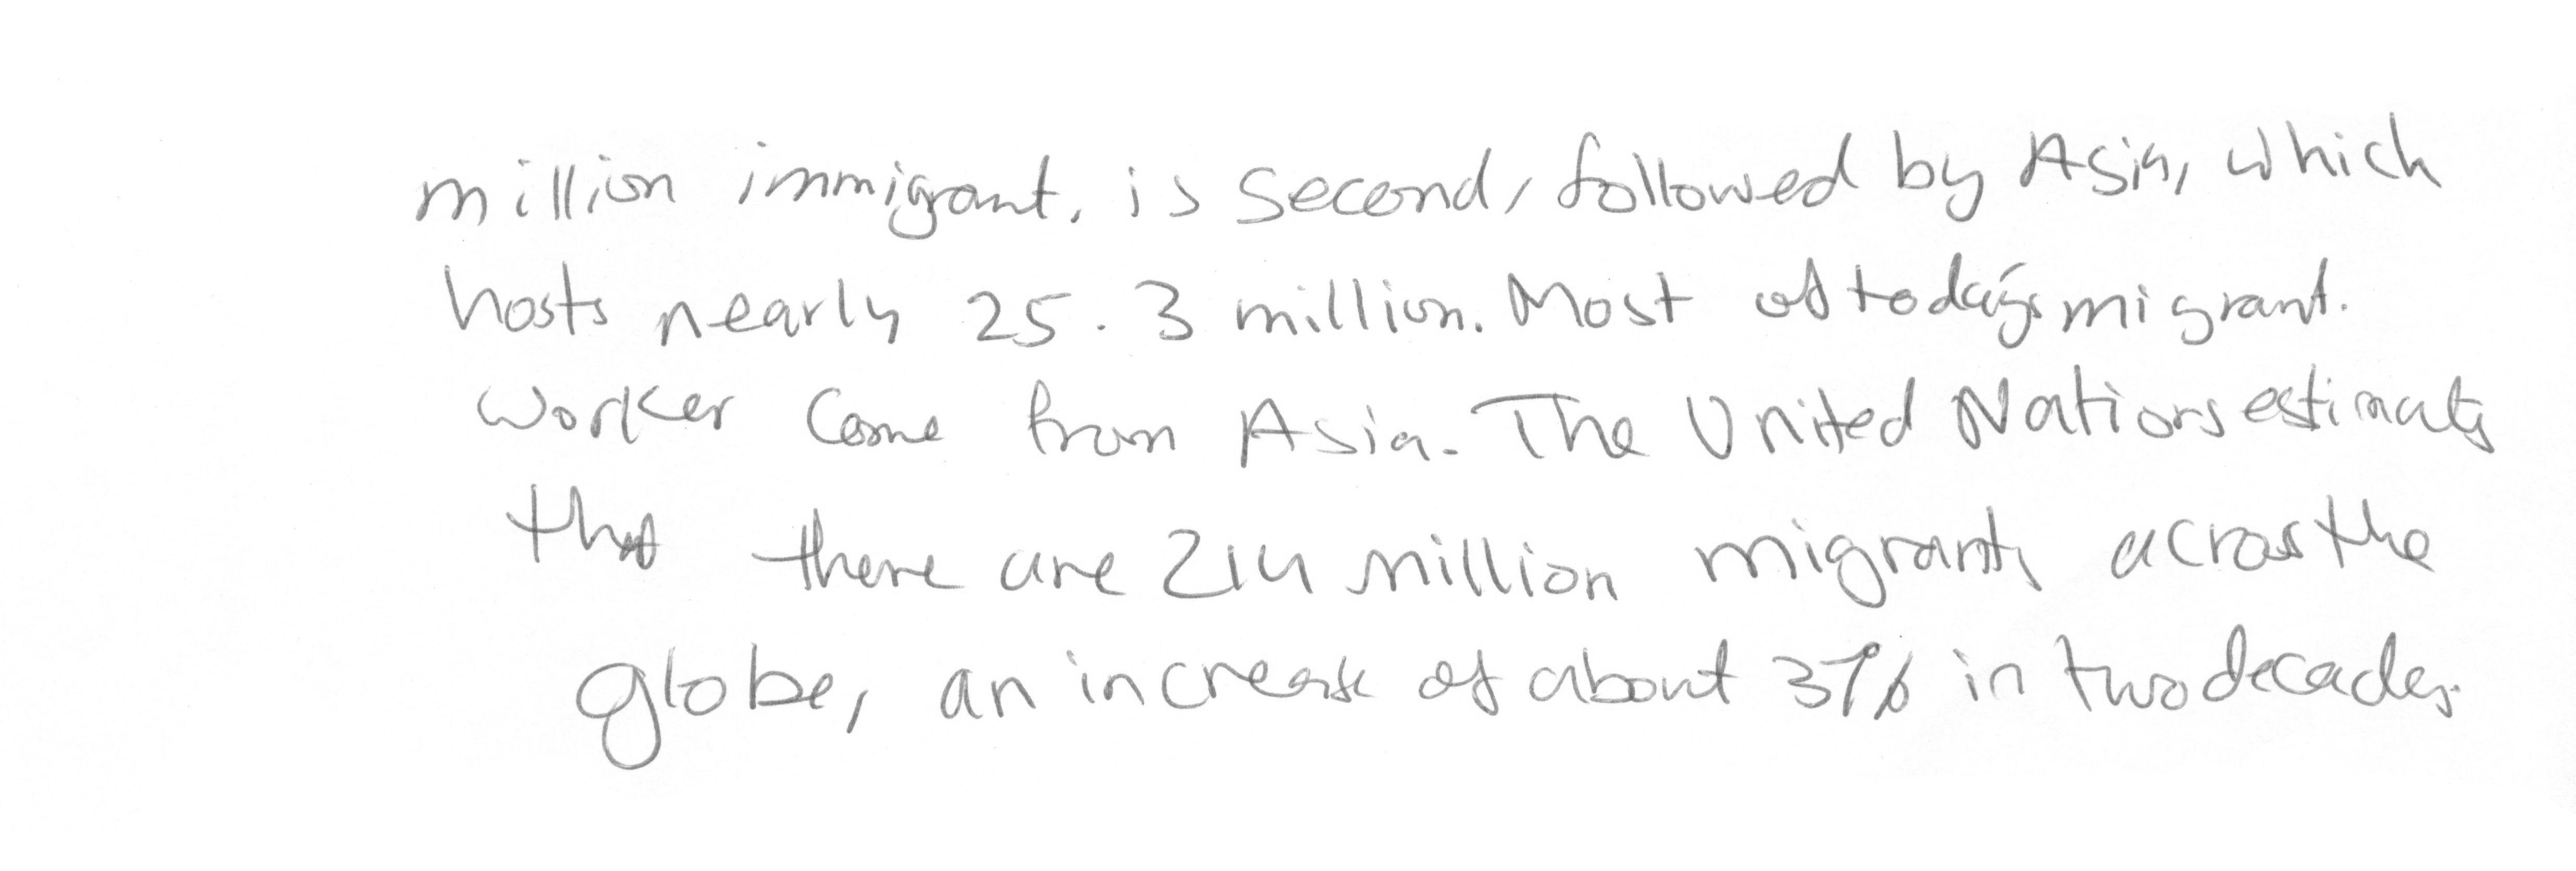 million immigrant, is second, followed by Asia, which
hosts nearly 25.3 million. Most of today's migrant.
worker come from Asia. The United Nations estimates
that there are 214 million migrants across the
globe, an increase of about 37% in two decades.